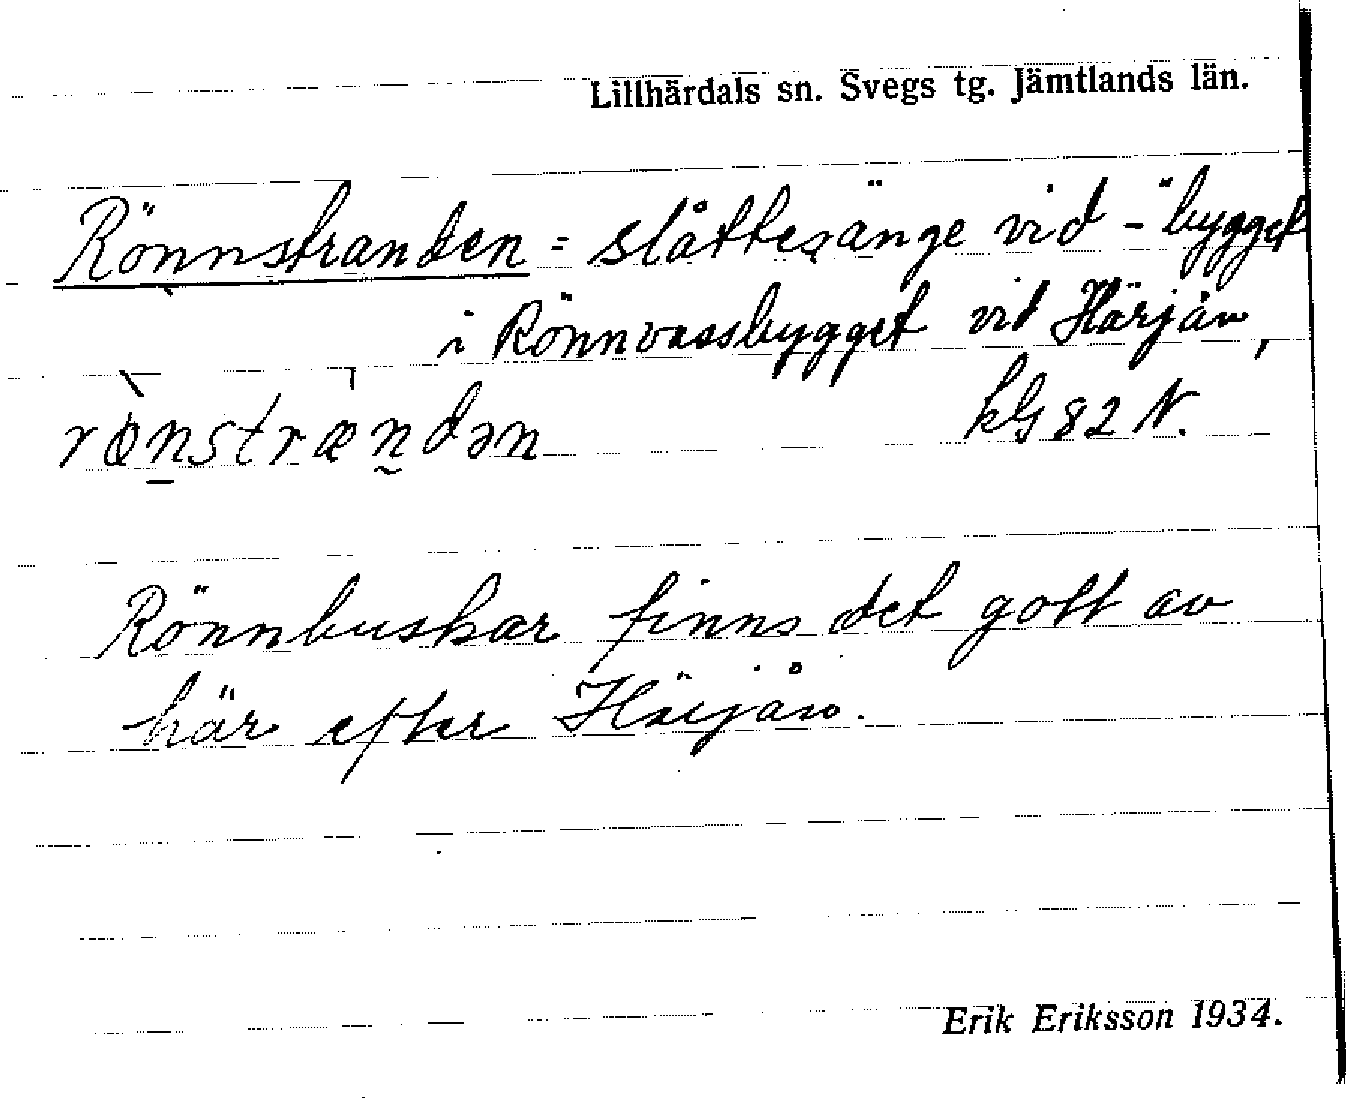 Lillhärdals sn. Svegs tg. Jämtlands län.
Rönnstranden = slåttesänge vid -bygget
i Rönnvassbygget vid Härjån,
rö̀nstrændən kG 82 N.
Rönnbuskar finns det gott av
här efter Härjån.
Erik Eriksson 1934.